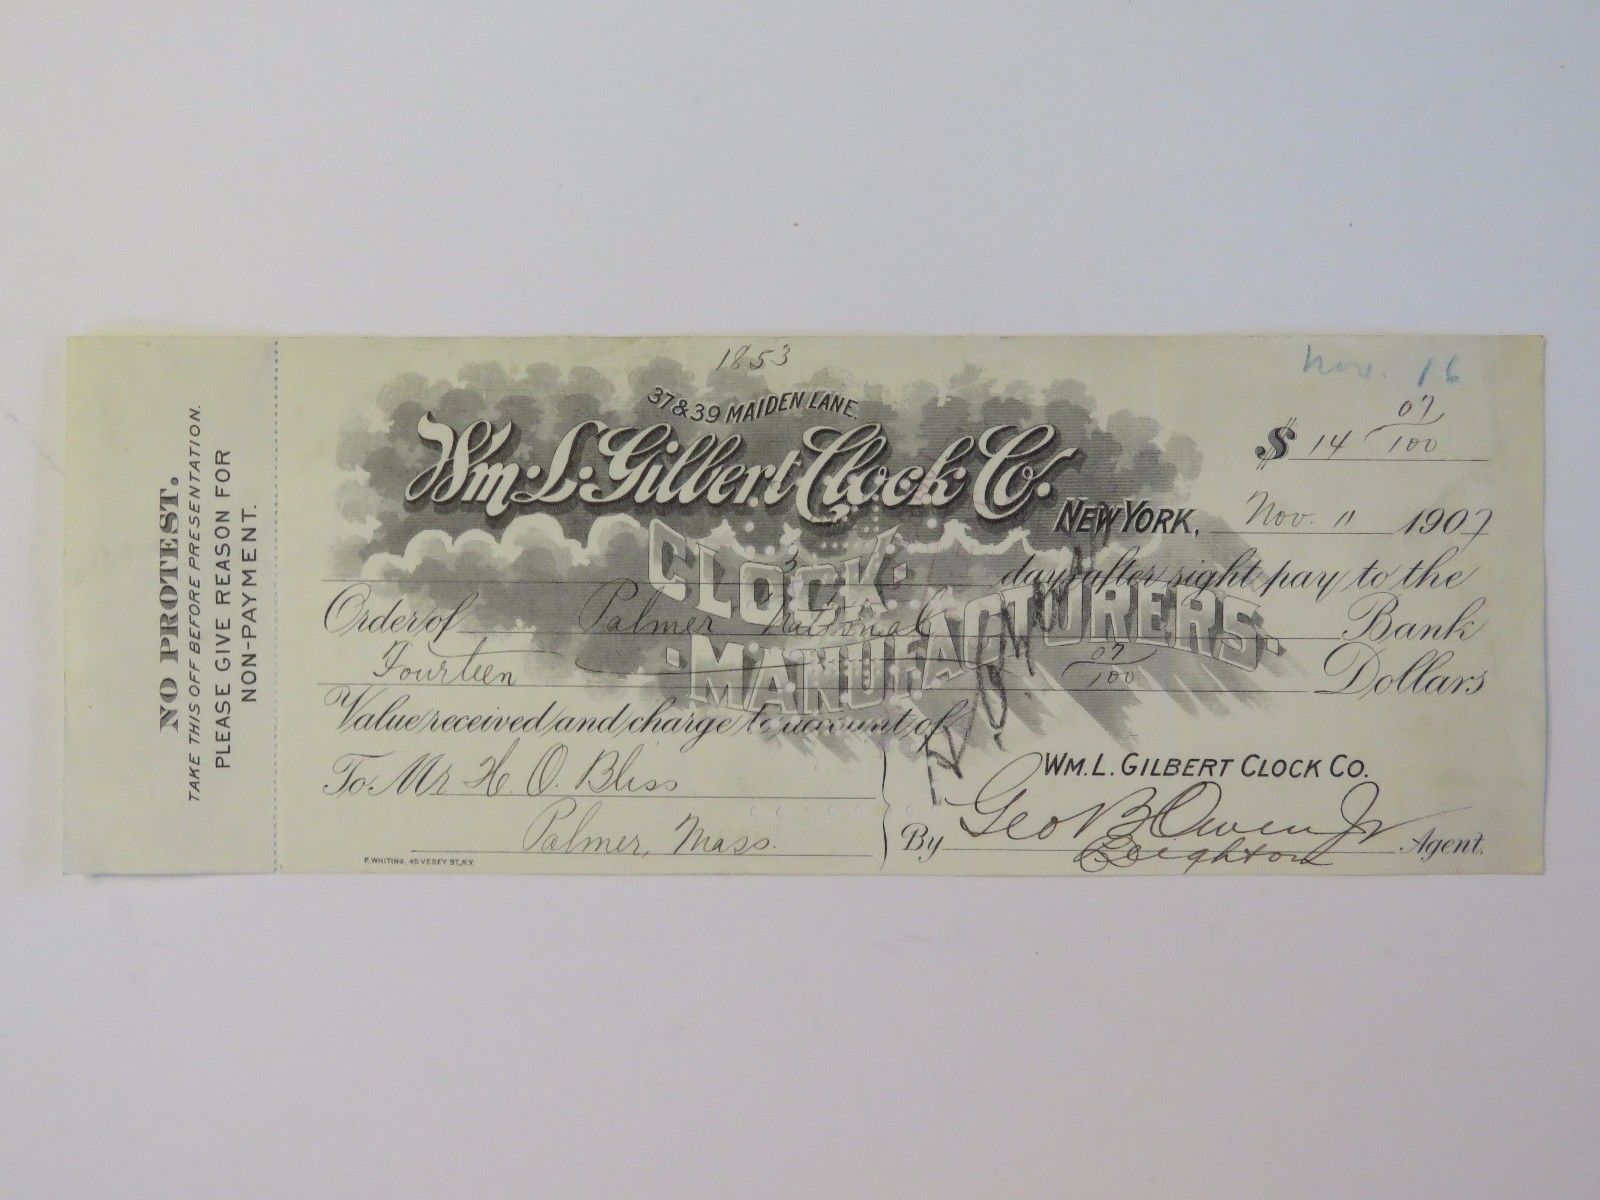 NO PROTEST.
TAKE THIS OFF BEFORE PRESENTATION.
PLEASE GIVE REASON FOR
NON-PAYMENT.
1853
Nov. 16
37 & 39 MAIDEN LANE.
Wm. L. Gilbert Clock Co.
CLOCK
MANUFACTURERS.
$ 14 07/100
NEW YORK, Nov. 11 1907
3 days after sight pay to the
Order of Palmer National Bank
Fourteen 07/100 Dollars
Value received and charge to account of
To Mr H. O. Bliss
Palmer, Mass.
WM. L. GILBERT CLOCK CO.
By Geo B Owen Jr Agent.
P. WHITING, 45 VESEY ST., N.Y.